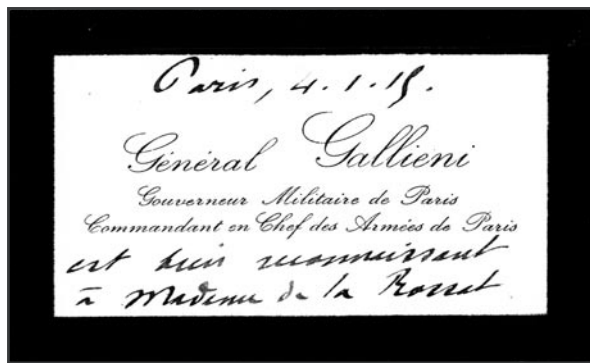 Paris, 4.1.15.
Général Gallieni
Gouverneur Militaire de Paris
Commandant en Chef des Armées de Paris
est bien reconnaissant
à Madame de la